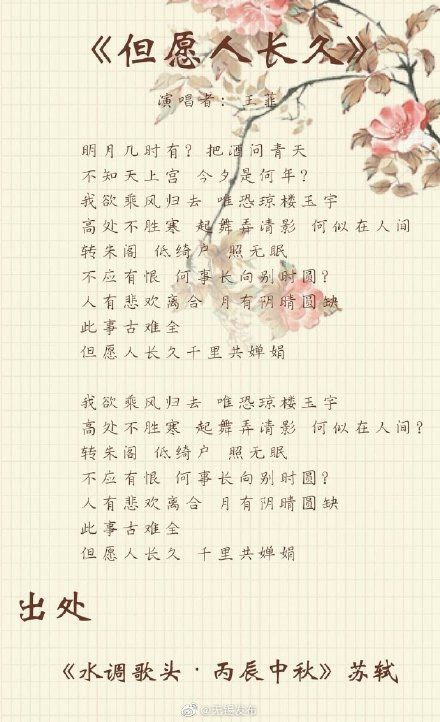 《但愿人长久》
演唱者：王菲
明月几时有？把酒问青天
不知天上宫 今夕是何年？
我欲乘风归去 唯恐琼楼玉宇
高处不胜寒 起舞弄清影 何似在人间
转朱阁 低绮户 照无眠
不应有恨 何事长向别时圆？
人有悲欢离合 月有阴晴圆缺
此事古难全
但愿人长久千里共婵娟
我欲乘风归去 唯恐琼楼玉宇
高处不胜寒 起舞弄清影 何似在人间？
转朱阁 低绮户 照无眠
不应有恨 何事长向别时圆？
人有悲欢离合 月有阴晴圆缺
此事古难全
但愿人长久 千里共婵娟
出处
《水调歌头·丙辰中秋》苏轼
@无锡发布